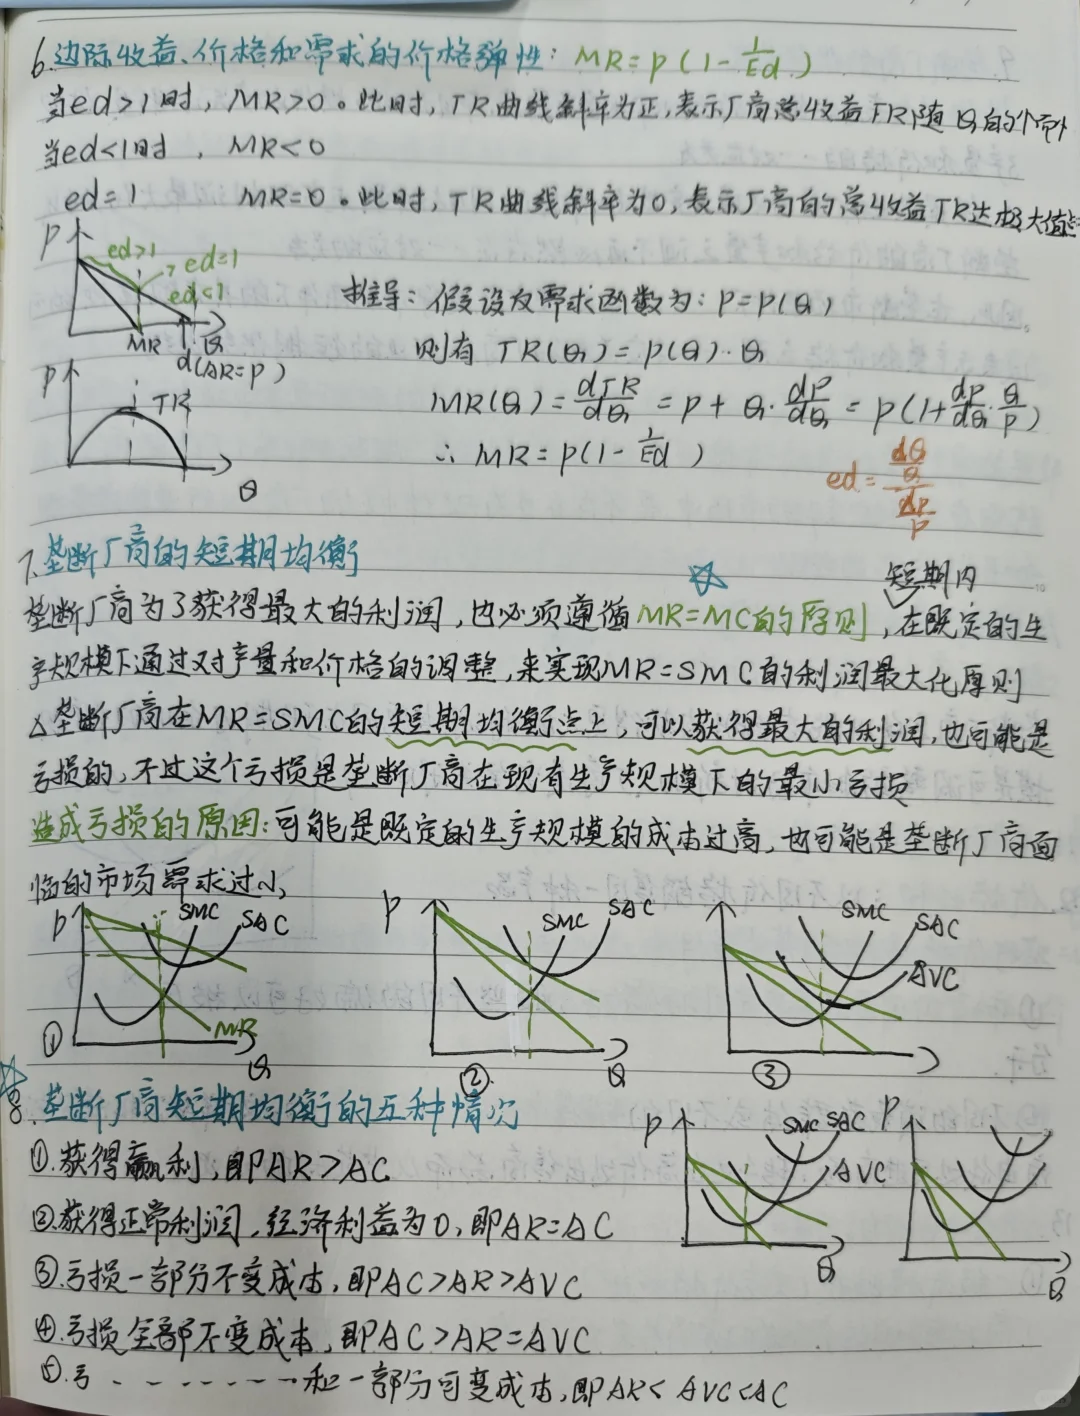 6.边际收益、价格和需求的价格弹性：MR=P(1-1/Ed)
当ed>1时，MR>0。此时，TR曲线斜率为正，表示厂商总收益TR随Q的
当ed<1时，MR<0
ed=1 MR=0。此时，TR曲线斜率为0，表示厂商的总收益TR达极大值点
P
ed>1
ed=1
ed<1
MR
Q
d(AR=P)
推导：假设反需求函数为：P=P(Q)
则有 TR(Q)=P(Q)·Q
P
TR
Q
MR(Q)=dTR/dQ=P+Q·dP/dQ=P(1+dP/dQ·Q/P)
∴ MR=P(1-1/Ed)
ed=(dQ/Q)/(dP/P)
7.垄断厂商的短期均衡
短期内
垄断厂商为了获得最大的利润，也必须遵循MR=MC的原则，在既定的生
产规模下通过对产量和价格的调整，来实现MR=SMC的利润最大化原则
△垄断厂商在MR=SMC的短期均衡点上，可以获得最大的利润，也可能是
亏损的，不过这个亏损是垄断厂商在现有生产规模下的最小亏损
造成亏损的原因：可能是既定的生产规模的成本过高，也可能是垄断厂商面
临的市场需求过小
P
SMC
SAC
MR
Q
①
P
SMC
SAC
Q
②
SMC
SAC
AVC
③
8.垄断厂商短期均衡的五种情况
①.获得赢利，即AR>AC
②.获得正常利润，经济利益为0，即AR=AC
③.亏损一部分不变成本，即AC>AR>AVC
④.亏损全部不变成本，即AC>AR=AVC
⑤.亏--------和一部分可变成本，即AR<AVC<AC
P
SMC
SAC
AVC
Q
P
Q